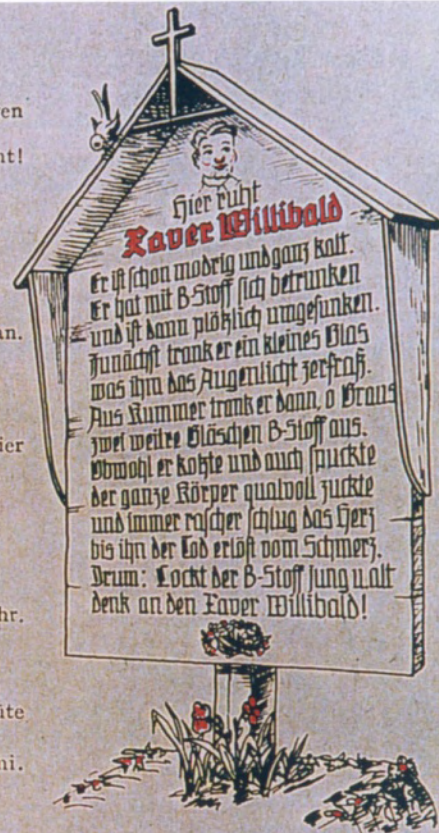 en
ht!
Hier ruht
Xaver Willibald
Er ist schon modrig und ganz kalt.
Er hat mit B-Stoff sich betrunken
und ist dann plötzlich umgesunken.
an.
Zunächst trank er ein kleines Glas
was ihm das Augenlicht zerfraß.
Aus Kummer trank er dann, o Graus
zwei weitre Gläschen B-Stoff aus.
ier
Obwohl er kotzte und auch spuckte
der ganze Körper qualvoll zuckte
und immer rascher schlug das Herz
bis ihn der Tod erlöst vom Schmerz.
Drum: Lockt der B-Stoff Jung u. alt
denk an den Xaver Willibald!
hr.
üte
ni.